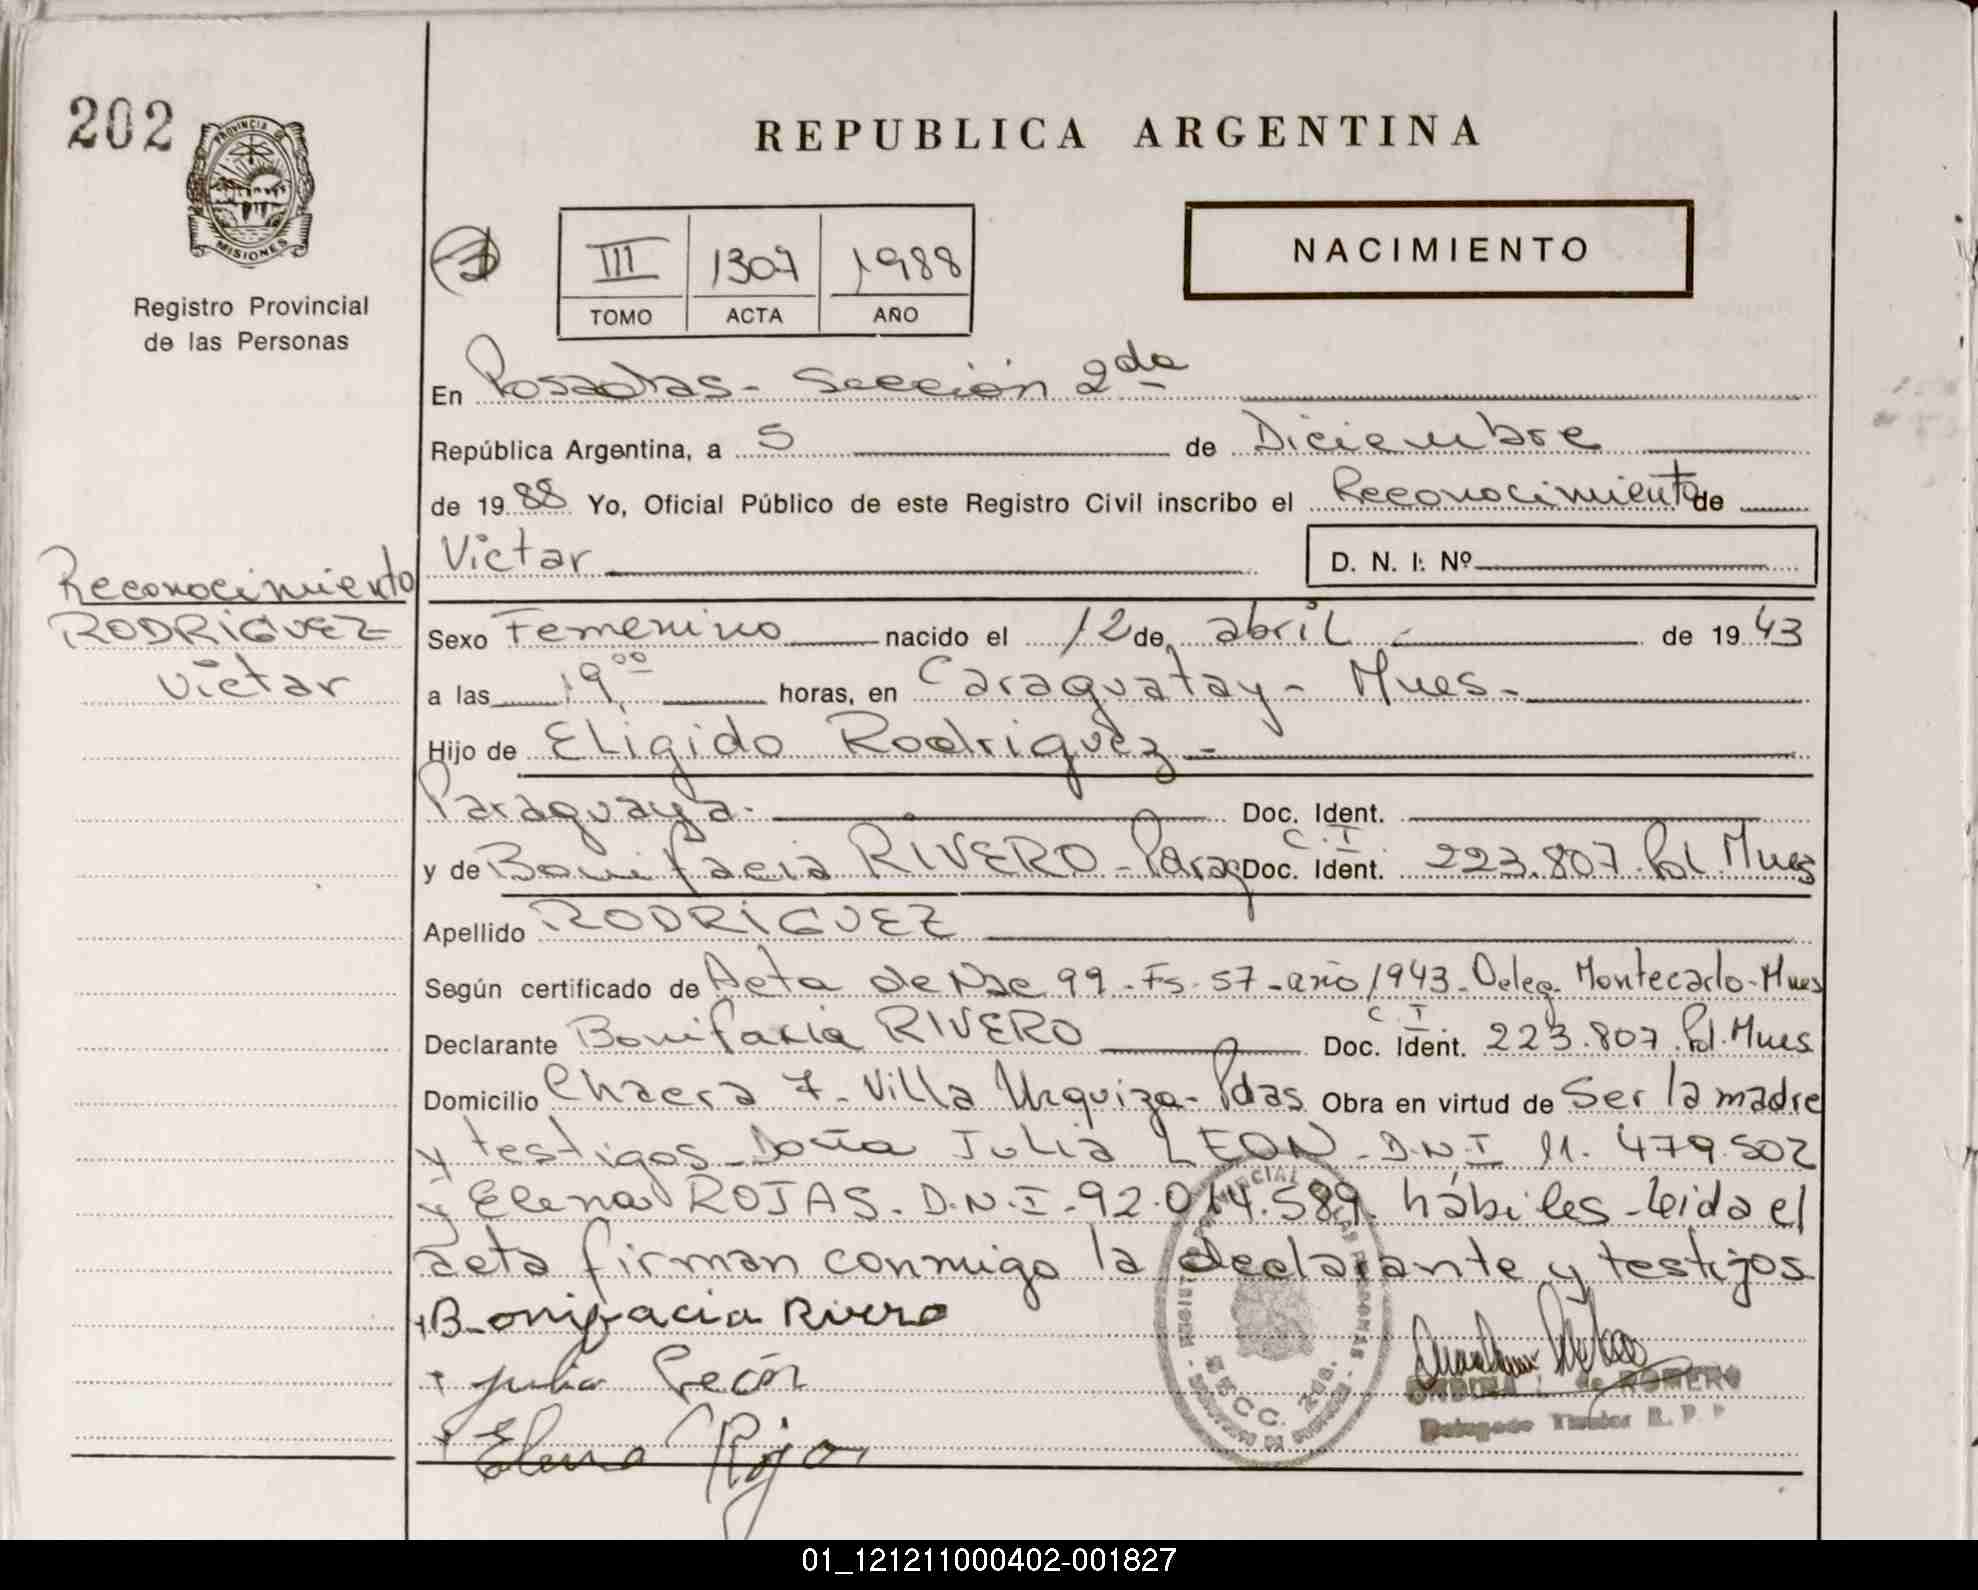 202
PROVINCIA DE
MISIONES
Registro Provincial
de las Personas
REPUBLICA ARGENTINA
III 1307 1988
TOMO ACTA AÑO
NACIMIENTO
En Posadas - Sección 2da
República Argentina, a 5 de Diciembre
de 1988 Yo, Oficial Público de este Registro Civil inscribo el Reconocimiento de
Victar
D. N. I: Nº
Reconocimiento
RODRIGUEZ
Victar
Sexo Femenino nacido el 12 de abril de 1943
a las 19,00 horas, en Caraguatay - Mnes -
Hijo de Eligido Rodriguez -
Paraguaya - Doc. Ident.
C. I.
y de Bonifacia RIVERO - Parag Doc. Ident. 223.807. Pol. Mnes
Apellido RODRIGUEZ
Según certificado de Acta de Nac 99 - Fs. 57 - año 1943 - Deleg. Montecarlo - Mnes
C. I.
Declarante Bonifacia RIVERO Doc. Ident. 223.807. Pol. Mnes
Domicilio Chacra 7 - Villa Urquiza - Pdas Obra en virtud de Ser la madre
y testigos - Doña Julia LEON - D.N.I 11.479.502
y Elena ROJAS. D.N.I - 92.014.589. hábiles - leida el
acta firman conmigo la declarante y testijos
Bonifacia Rivero
Julia León
Elena Rojas
SECC. 2da.
de ROMERO
Delegado Titular R. P. P
01_121211000402-001827